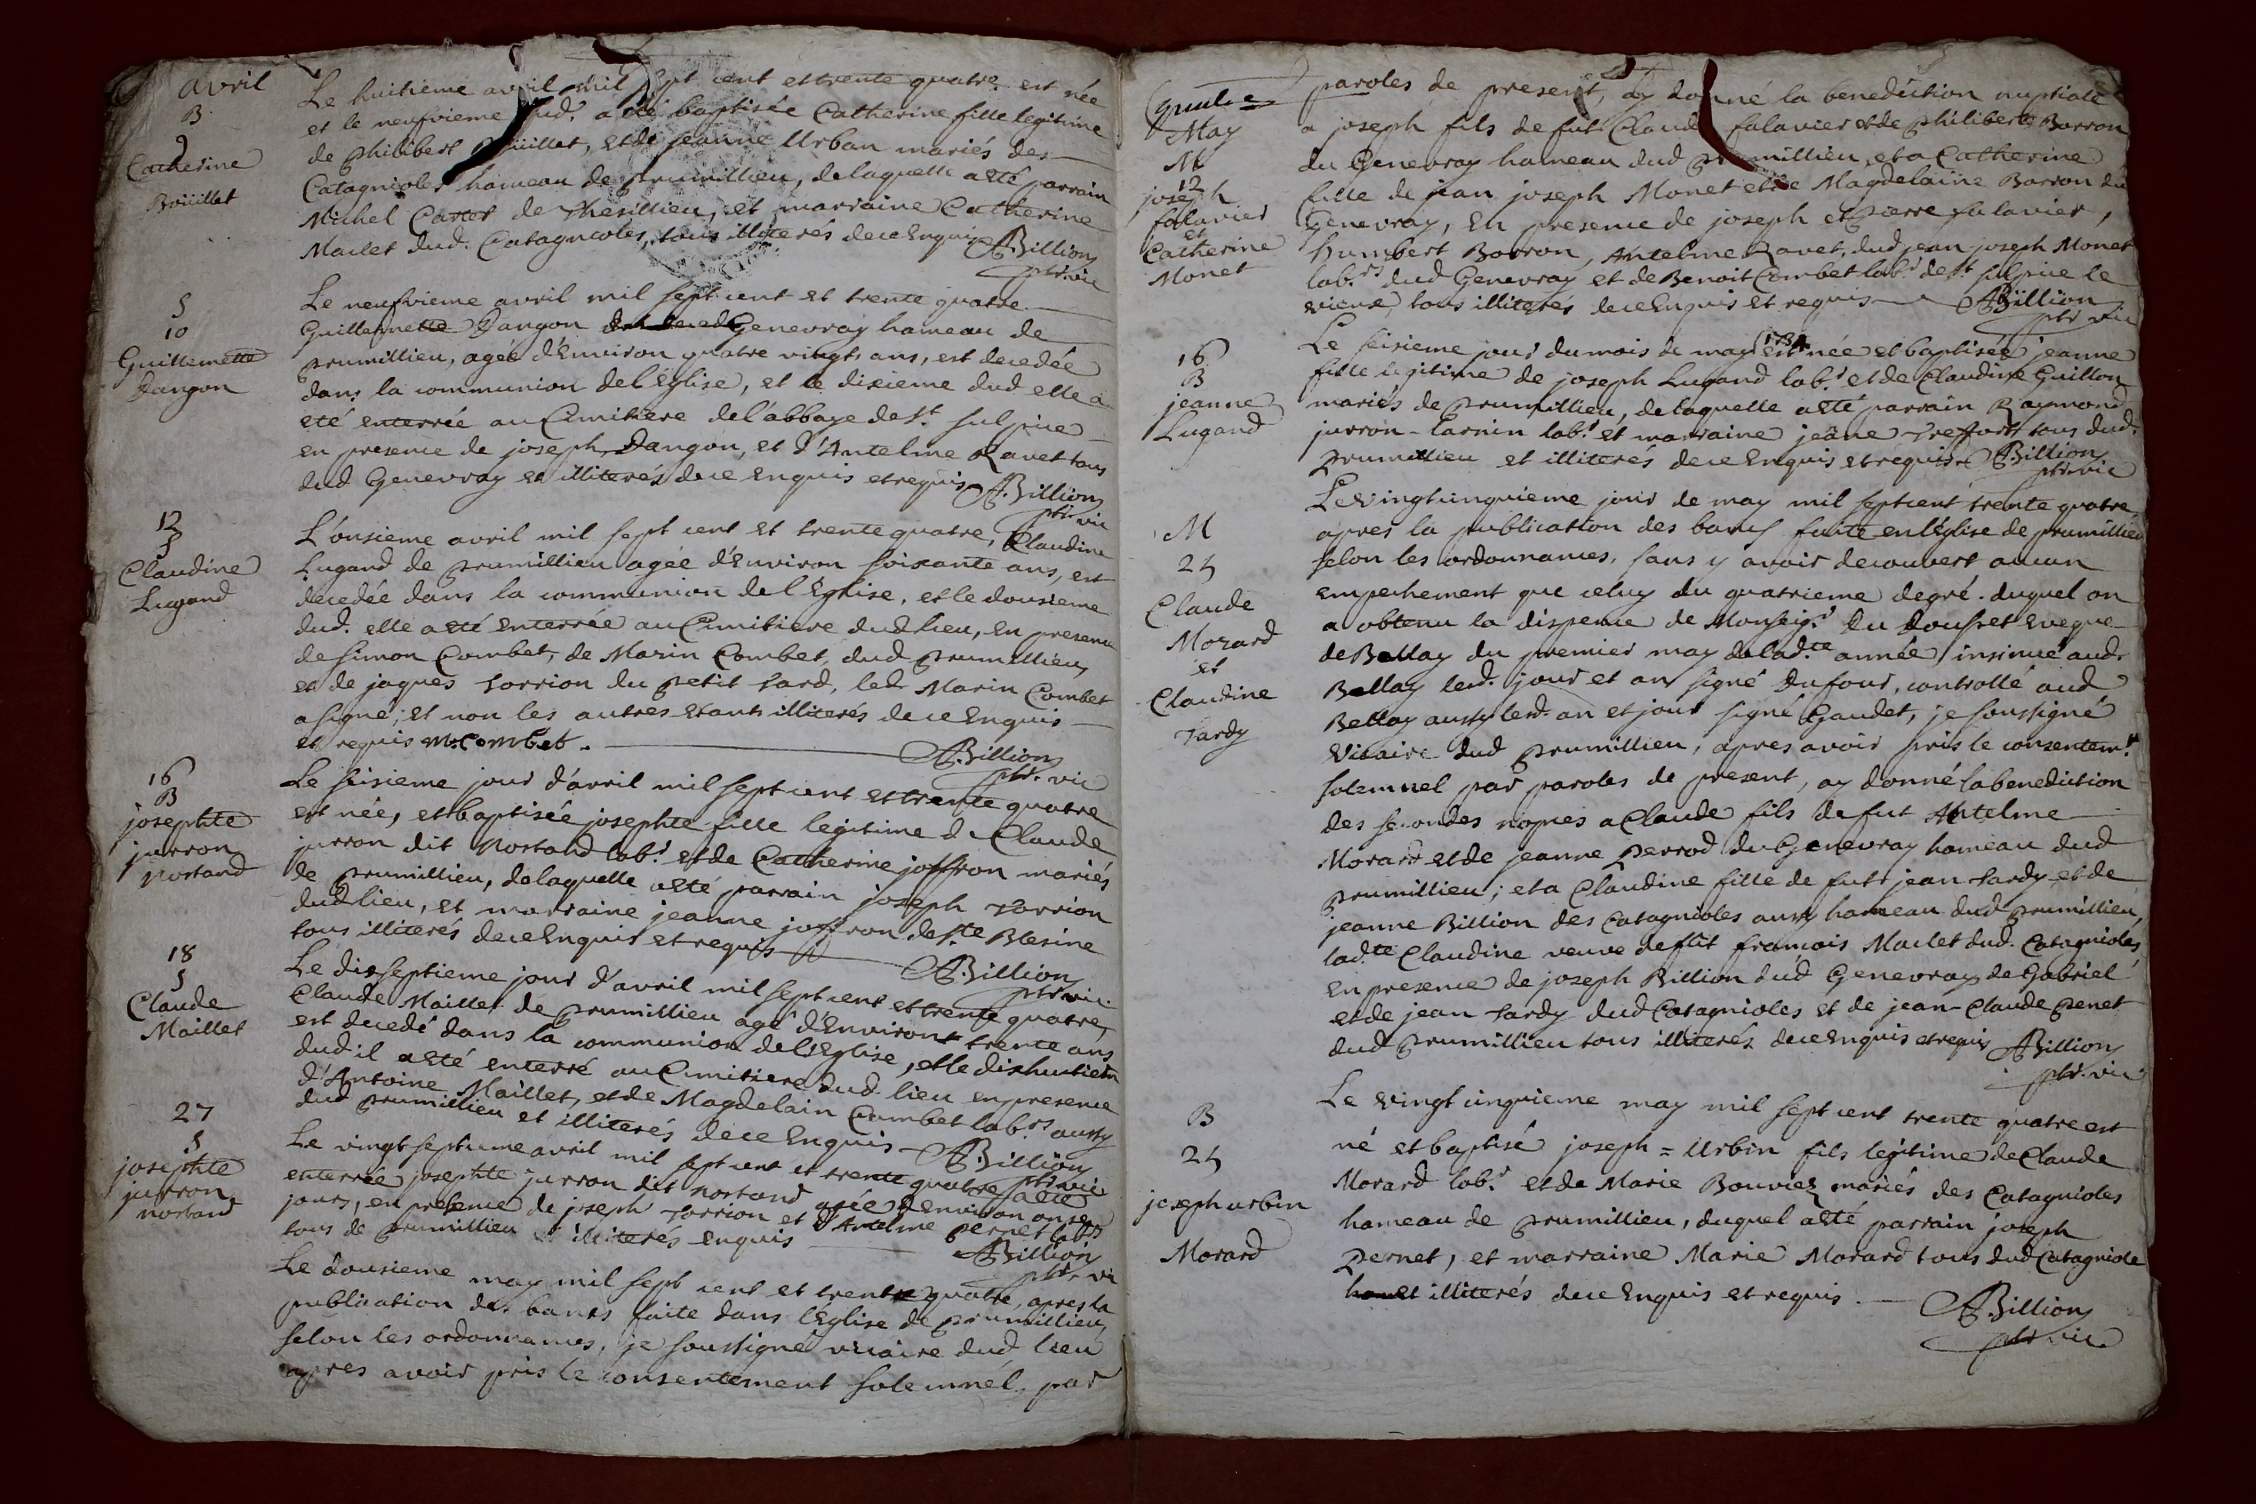 avril
B
9
Catherine
Boüillet
Le huitieme avril mil sept cent et trente quatre est née
et le neufvieme dud. a été baptisée Catherine fille legitime
de philibert Boüillet, et de jeanne Urban mariés des
Catagnioles hameau de prumillieu, de laquelle a été parrain
Michel Carrot de Thesillieu, et marraine Catherine
Maclet dud. Catagnioles, tous illiterés de ce Enquis ABillion
ptr. vic
S
10
Guillemette
Dangon
Le neufvieme avril mil sept cent et trente quatre
Guillemette Dangon Genevray hameau de
prumillieu, agée d'Environ quatre vingts ans, est decedée
dans la communion de l'église, et le dixieme dud. elle a
eté enterrée au Cimitiere de l'abbaye de St. sulpice
en presence de joseph Dangon, et d'Antelme Ravet tous
dud Genevray et illiterés de ce enquis et requis ABillion
ptr. vic
12
S
Claudine
Lugand
L'onsieme avril mil sept cent et trente quatre, Claudine
Lugand de prumillieu agée d'Environ soixante ans, est
decedée dans la communion de l'Eglise, et le dousieme
dud. elle a eté enterrée au Cimitiere dud lieu, en presence
de simon Combet, de Marin Combet, dud prumillieu,
et de jaques torrion du petit tard, led. Marin Combet
a signé, et non les autres etants illiterés de ce Enquis
et requis M. Combet. ABillion
ptr. vic
16
B
josephte
jurron
nortand
Le seisieme jour d'avril mil sept cent et trente quatre
est née, et baptisée josephte fille legitime de Claude
jurron dit Nortand lab.r et de Catherine joffron mariés
de prumillieu, de laquelle a eté parrain joseph torrion
dud lieu, et marraine jeanne joffron de ste Blesine
tous illiterés de ce Enquis et requis ABillion
ptr. vic.
18
S
Claude
Maillet
Le dixseptieme jour d'avril mil sept cent et trente quatre,
Claude Maillet de prumillieu agé d'Environt trente ans
est decedé dans la communion de l'Eglise, et le dixhuitieme
dud il a eté enterré au Cimitiere dud. lieu en presence
d'Antoine Maillet, et de Magdelain Combet lab.rs aussy
dud prumillieu et illiterés de ce Enquis ABillion
ptr. vic
27
S
josephte
jurron
nortand
Le vingt septieme avril mil sept cent et trente quatre a eté
enterrée josephte jurron dit nortand agée d'Environ onze
jours, en presence de joseph torrion et d'Antelme pernet lab.rs
tous de prumillieu et illiterés enquis ABillion
ptr. vi
Le dousieme may mil sept cent et trente quatre, apres la
publication des bancs faite dans l'Eglise de prumillieu,
selon les ordonnances, je soussigné vicaire dud. lieu
apres avoir pris le consentement solemnel, par
May
M
12
joseph
falavier
et
Catherine
Monet
paroles de present, ay donné la benediction nuptiale
a joseph fils de fut Claude falavier et de philiberte Borron
du Genevray hameau dud prumillieu, et a Catherine
fille de jean joseph Monet et de Magdelaine Borron du
Genevray, En presence de joseph et pierre falavier,
humbert Borron, Antelme Ravet, dud jean joseph Monet
lab.rs dud Genevray et de Benoit Combet lab.r de st. sulpice le
vieux, tous illiterés de ce Enquis et requis ABillion
ptr. vic
16
B
jeanne
Lugand
Le seisieme jour du mois de may 1734 est née et baptisée jeanne
fille legitime de joseph Lugand lab.r et de Claudine Guillon
mariés de prumillieu, de laquelle a eté parrain Raymond
jurron-Carnin lab.r et marraine jeane Treffort tous dud.
prumillieu et illiterés de ce Enquis et requis ABillion
ptr. vic
M
25
Claude
Morard
et
Claudine
tardy
Le vingt cinquieme jour de may mil sept cent trente quatre,
apres la publication des bancs faite en l'église de prumillieu
selon les ordonnances, sans y avoir decouvert aucun
empechement que celuy du quatrieme degré. duquel on
a obtenu la dispence de Monseig.r du dousset Eveque
de Bellay du premier may de lad.te année, insinué aud.
Bellay lesd. jour et an signé Dufour, controllé aud
Bellay aussy lesd. an et jour signé Gaudet, je soussigné
Vicaire dud prumillieu, apres avoir pris le consentem.t
solemnel par paroles de present, ay donné la benediction
des secondes nopces a Claude fils de fut Antelme
Morard et de jeanne perrod du Genevray hameau dud
prumillieu, et a Claudine fille de fut jean tardy et de
jeanne Billion des Catagnioles aussy hameau dud prumillieu,
lad.te Claudine veuve de fut francois Maclet dud. Catagnioles
En presence de joseph Billion dud Genevray de Gabriel
et de jean tardy dud Catagnioles et de jean-Claude penet
dud prumillieu tous illiterés de ce enquis et requis ABillion
ptr. vic
B
25
joseph urbin
Morard
Le vingt cinquieme may mil sept cent trente quatre est
né et baptisé joseph=Urbin fils légitime de Claude
Morard lab.r et de Marie Bouvier mariés des Catagnioles
hameau de prumillieu, duquel a eté parrain joseph
pernet, et marraine Marie Morard tous dud Catagniole
et illiterés de ce Enquis et requis. ABillion
ptr. vic